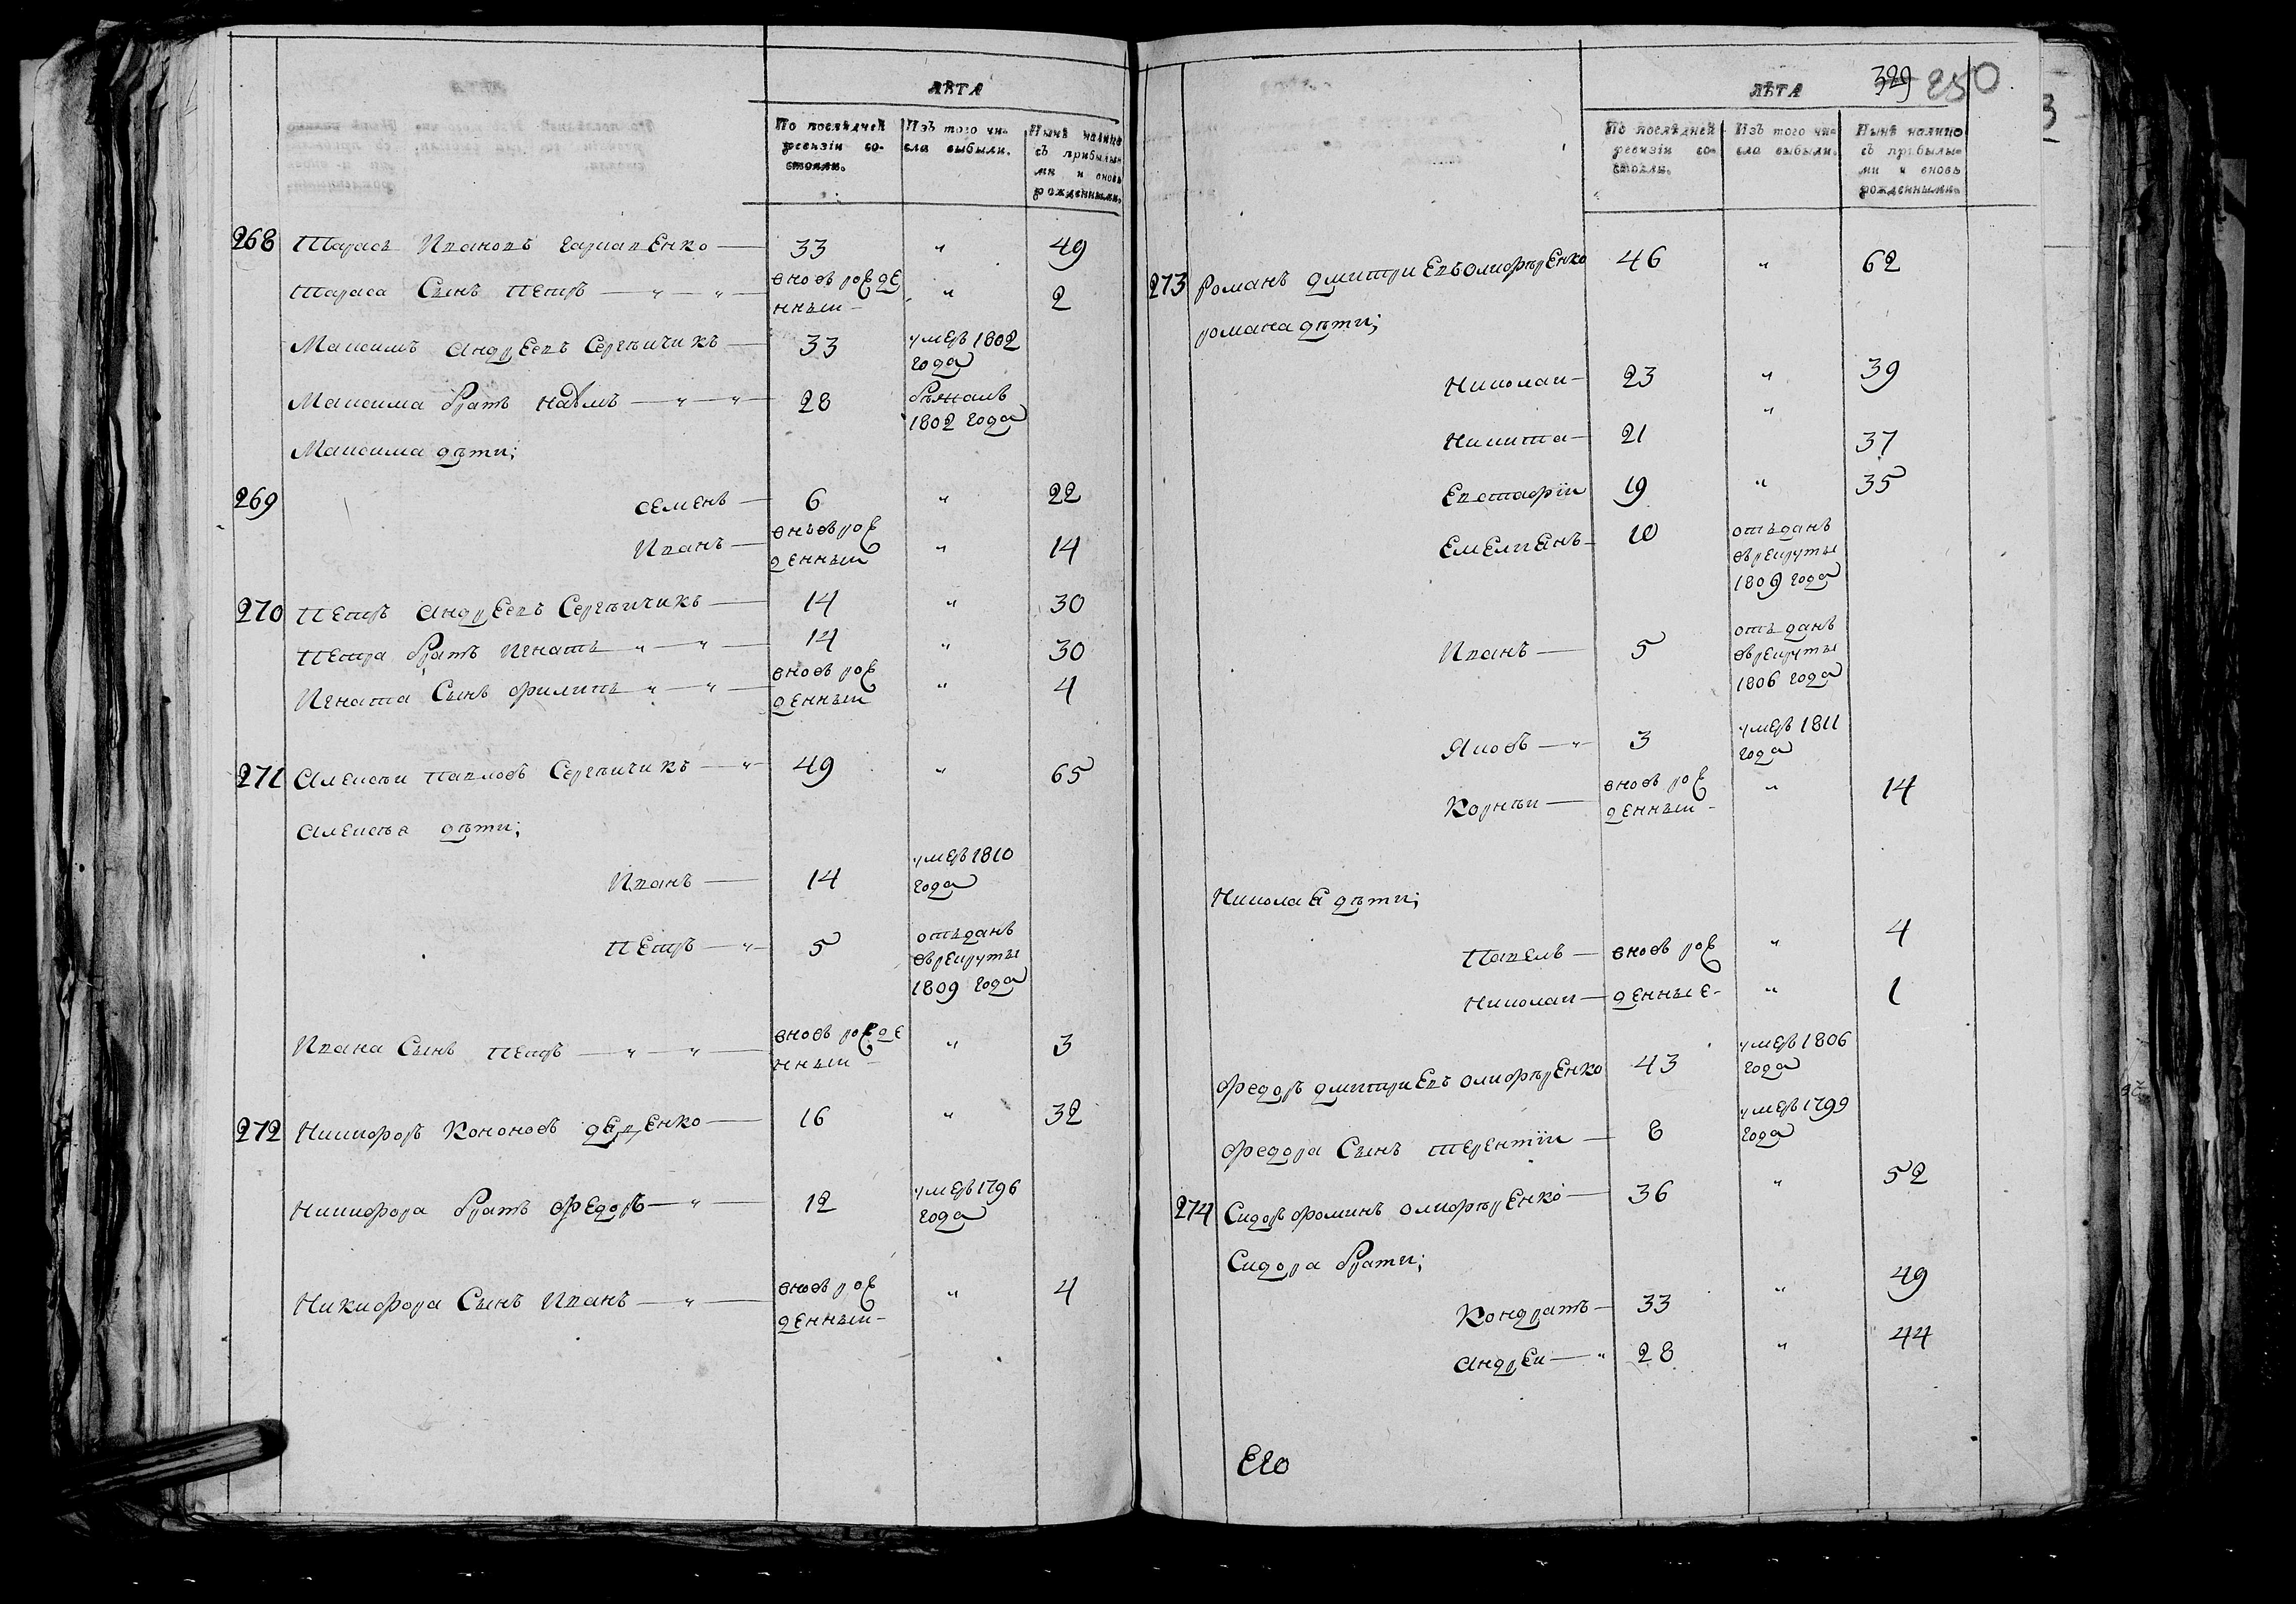 ЛѢТА
По послѣдней ревизіи состояли.
Изъ того числа выбыли.
Нынѣ налицо съ прибылыми и вновь рожденными.
268 Тарасъ Ивановъ Гармапенко — 33 " 49
Тараса Сынъ Петръ — " — " — вновь рожденныи " 2
Максимъ андреевъ Сергѣичикъ — 33 умеръ 1802 года
Максима братъ наумъ — " — " 28 бѣжалъ 1802 года
Максима дѣти;
269 семенъ — 6 " 22
Иванъ — вновь рожденныи " 14
270 Петръ андреевъ Сергѣичикъ — 14 " 30
Петра братъ Игнатъ " — " — 14 " 30
Игната Сынъ филипъ " — " — вновь рожденныи " 4
271 алексѣи павловъ Сергѣичикъ — " 49 " 65
алексѣа дѣти;
Иванъ — 14 умеръ 1810 года
Петръ — " — 5 отъданъ въ рекруты 1809 года
Ивана Сынъ Петръ — " — " — вновь рожденныи — " 3
272 Никифоръ Кононовъ — 16 " 32
Никифора братъ федоръ — " — 12 умеръ 1796 года
Никифора Сынъ Иванъ — " — вновь рожденныи — " 4
329 250
ЛѢТА
По послѣдней ревизіи состояли.
Изъ того числа выбыли.
Нынѣ налицо съ прибылыми и вновь рожденными.
273 романъ дмитриевъ олифѣренко 46 " 62
романа дѣти;
Николаи — 23 " 39
Никита — 21 " 37
Евстафіи 19 " 35
Емелианъ — 10 отъданъ въ рекруты 1809 года
Иванъ — 5 отъданъ въ рекруты 1806 года
Яковъ — " — 3 умеръ 1811 года
Корнѣи — вновь рожденныи — " 14
Николаа дѣти;
Павелъ — вновь рож " 4
Николаи — денные — " 1
федоръ дмитриевъ олифѣренко 43 умеръ 1806 года
федора Сынъ терентіи — 8 умеръ 1799 года
274 Сидоръ фоминъ олифѣренко — 36 " 52
Сидора брати;
Кондратъ — 33 " 49
андреи — " 28 " 44
Его